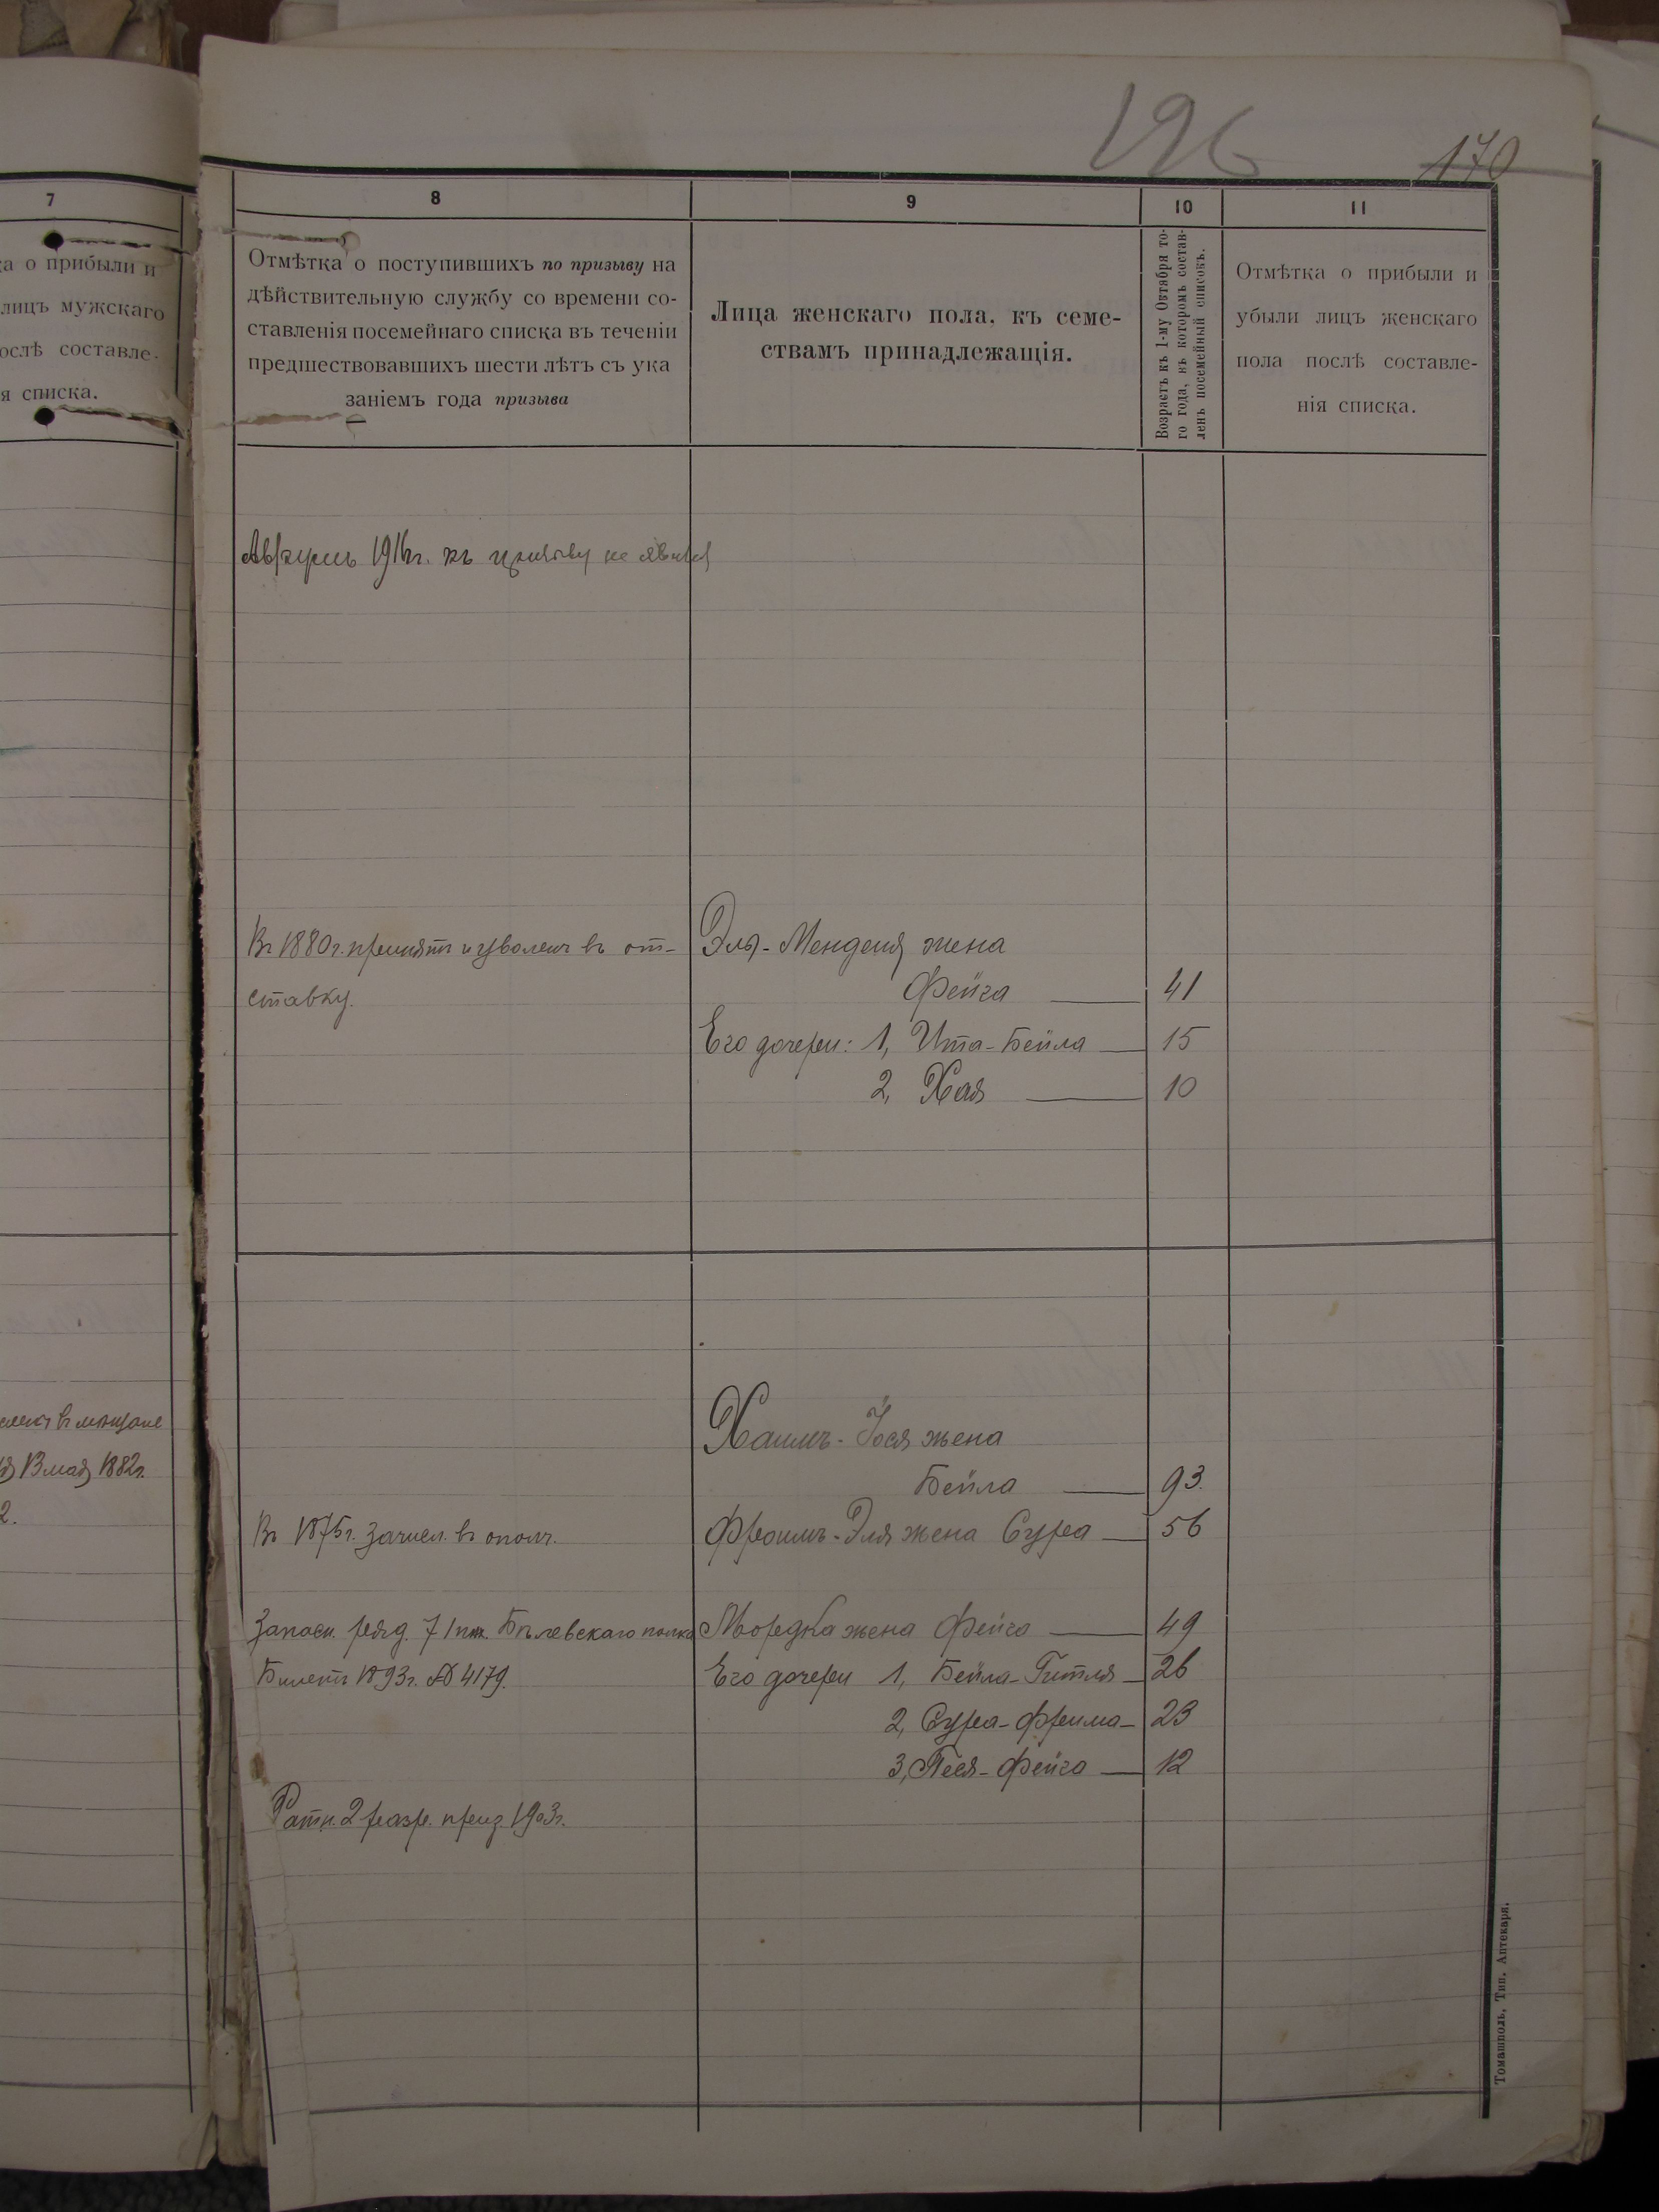 196
170
7
а о прибыли и
лицъ мужскаго
ослѣ составле-
я списка.
въ мѣщане
13 мая 1882г.
2.
8
9
10
11
Отмѣтка о поступившихъ по призыву на
дѣйствительную службу со времени со-
ставленія посемейнаго списка въ теченіи
предшествовавшихъ шести лѣтъ съ ука
заніемъ года призыва
Лица женскаго пола, къ семе-
ствамъ принадлежащія.
Возрастъ къ 1-му Октября то-
го года, въ которомъ состав-
ленъ посемейный списокъ.
Отмѣтка о прибыли и
убыли лицъ женскаго
пола послѣ составле-
нія списка.
1916г. къ призыву не явился
Въ 1880г. принятъ и уволенъ въ от-
ставку.
Эля-Менделя жена
Фейга 41
Его дочери: 1, Ита-Бейла 15
2, Хая 10
Хаимъ-Іося жена
Бейла 93.
Въ 1875г. зачисл. въ ополч.
Фроимъ-Эля жена Сура 56
Запасн. ряд. 71 пѣх. Бѣлевскаго полка
Мордка жена Фейга 49
Билетъ 1893г. № 4179.
Его дочери 1, Бейла-Гитля 26
2, Сура-Фрима 23
3, Песя-Фейга 12
Ратн. 2 разр. приз. 1903г.
Томашполь, Тип. Аптекаря.